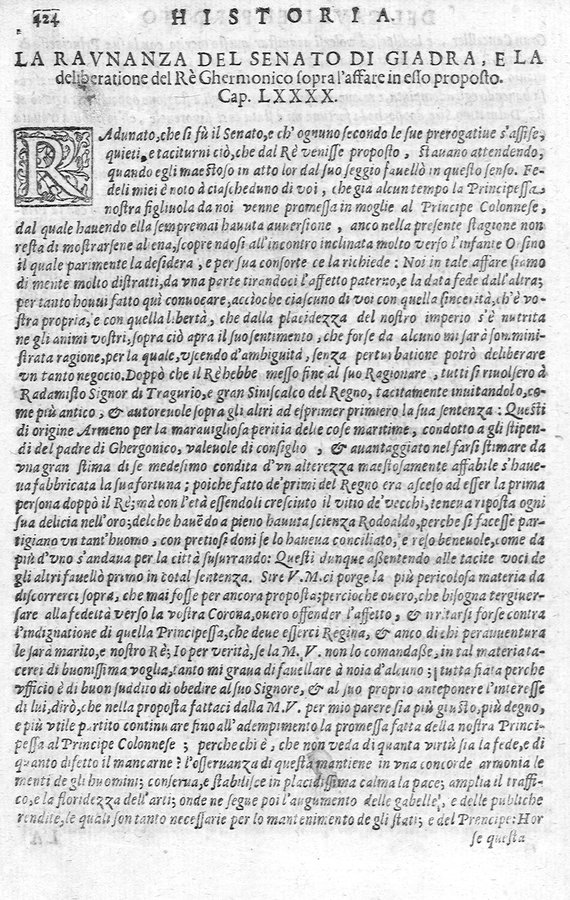 424
HISTORIA.
LA RAVNANZA DEL SENATO DI GIADRA, E LA
deliberatione del Rè Ghermonico sopra l'affare in esso proposto.
Cap. LXXXX.
RAdunato, che si fù il Senato, e ch' ognuno secondo le sue prerogatiue s'assise,
quieti, e taciturni ciò, che dal Rè venisse proposto, stauano attendendo,
quando egli maestoso in atto lor dal suo seggio fauellò in questo senso. Fe-
deli miei è noto à ciascheduno di voi, che gia alcun tempo la Principessa,
nostra figliuola da noi venne promessa in moglie al Principe Colonnese,
dal quale hauendo ella sempremai hauuta auuersione, anco nella presente stagione non
resta di mostrarsene aliena, scoprendosi all'incontro inclinata molto verso l'infante Orsino
il quale parimente la desidera, e per sua consorte ce la richiede: Noi in tale affare siamo
di mente molto distratti, da vna parte tirandoci l'affetto paterno, e la data fede dall'altra;
per tanto houui fatto quì conuocare, acciòche ciascuno di voi con quella sincerità, ch'è vo-
stra propria, e con quella libertà, che dalla placidezza del nostro imperio s'è nutrita
ne gli animi vostri, sopra ciò apra il suo sentimento, che forse da alcuno mi sarà sommini-
strata ragione, per la quale, vscendo d'ambiguità, senza perturbatione potrò deliberare
vn tanto negocio. Doppò che il Rè hebbe messo fine al suo Ragionare, tutti si riuolsero à
Radamisto Signor di Tragurio, e gran Siniscalco del Regno, tacitamente inuitandolo, co-
me più antico, & autoreuole sopra gli altri ad esprimer primiero la sua sentenza: Questi
di origine Armeno per la marauigliosa peritia delle cose maritime, condotto a gli stipen-
di del padre di Ghergonico, valeuole di consiglio, & auantaggiato nel farsi stimare da
vna gran stima di se medesimo condita d'vn alterezza maestosamente affabile s'haue-
ua fabbricata la sua fortuna; poiche fatto de' primi del Regno era asceso ad esser la prima
persona doppò il Rè; mà con l'età essendoli cresciuto il vitio de' vecchi, teneua riposta ogni
sua delicia nell'oro; del che hauēdo a pieno hauuta scienza Rodoaldo, perche si facesse par-
tigiano vn tant'huomo, con pretiosi doni se lo haueua conciliato, e reso beneuole, come da
più d'vno s'andaua per la città susurrando: Questi dunque assentendo alle tacite voci de
gli altri fauellò primo in total sentenza. Sire V. M. ci porge la più pericolosa materia da
discorrerci sopra, che mai fosse per ancora proposta; percioche ouero, che bisogna tergiuer-
sare alla fedeltà verso la vostra Corona, ouero offender l'affetto, & irritarsi forse contra
l'indignatione di quella Principessa, che deue esserci Regina, & anco di chi perauuentura
le sarà marito, e nostro Rè; Io per verità, se la M. V. non lo comandasse, in tal materia ta-
cerei di buonissima voglia, tanto mi graua di fauellare à noia d'alcuno; tutta fiata perche
vfficio è di buon suddito di obedire al suo Signore, & al suo proprio anteponere l'interesse
di lui, dirò, che nella proposta fattaci dalla M. V. per mio parere sia più giusto, più degno,
e più vtile partito continuare fino all'adempimento la promessa fatta della nostra Princi-
pessa al Principe Colonnese; perche chi è, che non veda di quanta virtù sia la fede, e di
quanto difetto il mancarne? l'osseruanza di questa mantiene in vna concorde armonia le
menti de gli huomini; conserua, e stabilisce in placidissima calma la pace; amplia il traffi-
co, e la floridezza dell'arti; onde ne segue poi l'augumento delle gabelle, e delle publiche
rendite, le quali son tanto necessarie per lo mantenimento de gli stati; e del Prencipe: Hor
se questa